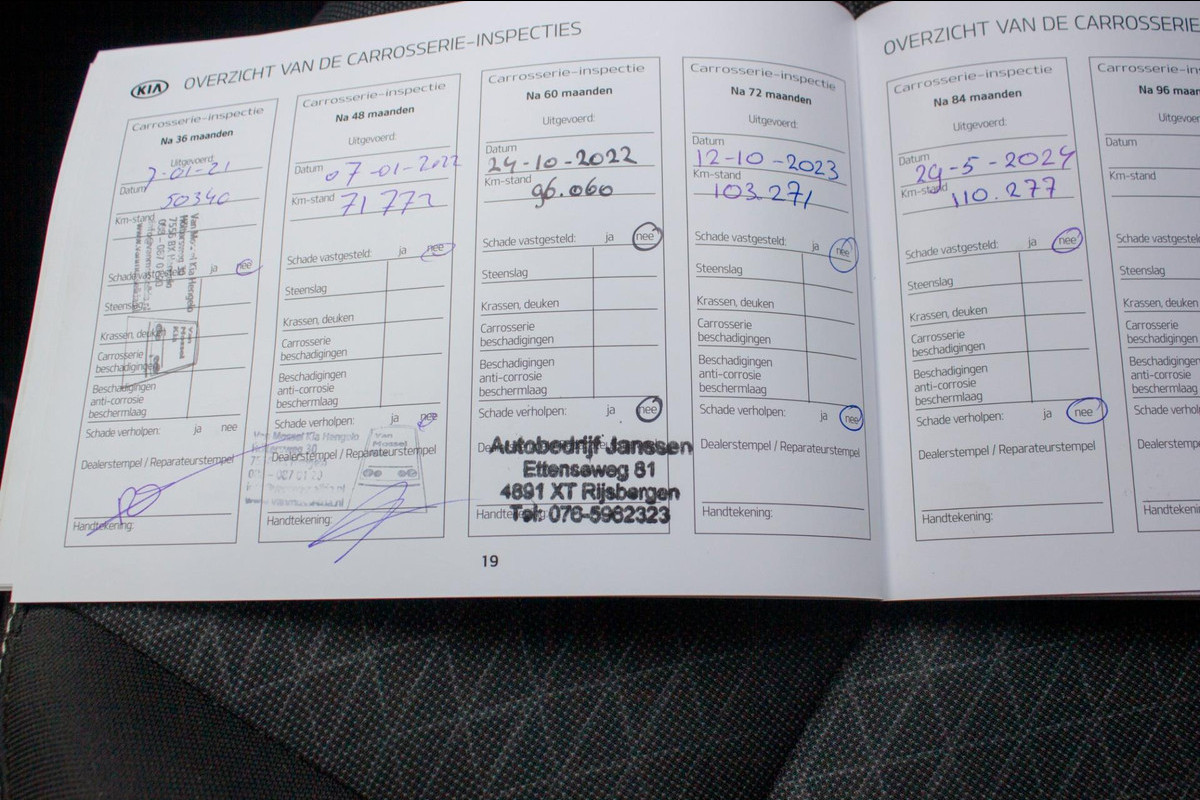 KIA OVERZICHT VAN DE CARROSSERIE-INSPECTIES
Carrosserie-inspectie
Na 36 maanden
Uitgevoerd:
Datum 7-01-21
50340
Km-stand
Schade vastgesteld: ja nee
Steenslag
Krassen, deuken
Carrosserie
beschadigingen
Beschadigingen
anti-corrosie
beschermlaag
Schade verholpen: ja nee
Dealerstempel / Reparateurstempel
Handtekening:
Carrosserie-inspectie
Na 48 maanden
Uitgevoerd:
Datum 07-01-2022
Km-stand 71772
Schade vastgesteld: ja nee
Steenslag
Krassen, deuken
Carrosserie
beschadigingen
Beschadigingen
anti-corrosie
beschermlaag
Schade verholpen: ja nee
Van Mossel Kia Hengelo
Dealerstempel / Reparateurstempel
Van
Mossel
Handtekening:
Carrosserie-inspectie
Na 60 maanden
Uitgevoerd:
Datum
24-10-2022
Km-stand
96.060
Schade vastgesteld: ja nee
Steenslag
Krassen, deuken
Carrosserie
beschadigingen
Beschadigingen
anti-corrosie
beschermlaag
Schade verholpen: ja nee
Autobedrijf Janssen
Ettenseweg 81
4891 XT Rijsbergen
Tel: 076-5962323
Handtekening:
Carrosserie-inspectie
Na 72 maanden
Uitgevoerd:
Datum
12-10-2023
Km-stand
103.271
Schade vastgesteld: ja nee
Steenslag
Krassen, deuken
Carrosserie
beschadigingen
Beschadigingen
anti-corrosie
beschermlaag
Schade verholpen: ja nee
Dealerstempel / Reparateurstempel
Handtekening:
19
OVERZICHT VAN DE CARROSSERIE
Carrosserie-inspectie
Na 84 maanden
Uitgevoerd:
Datum
29-5-2024
Km-stand
110.277
Schade vastgesteld: ja nee
Steenslag
Krassen, deuken
Carrosserie
beschadigingen
Beschadigingen
anti-corrosie
beschermlaag
Schade verholpen: ja nee
Dealerstempel / Reparateurstempel
Handtekening:
Carrosserie-ins
Na 96 maan
Uitgevoer
Datum
Km-stand
Schade vastgesteld
Steenslag
Krassen, deuken
Carrosserie
beschadigingen
Beschadigingen
anti-corrosie
beschermlaag
Schade verhol
Dealerstemp
Handtekening